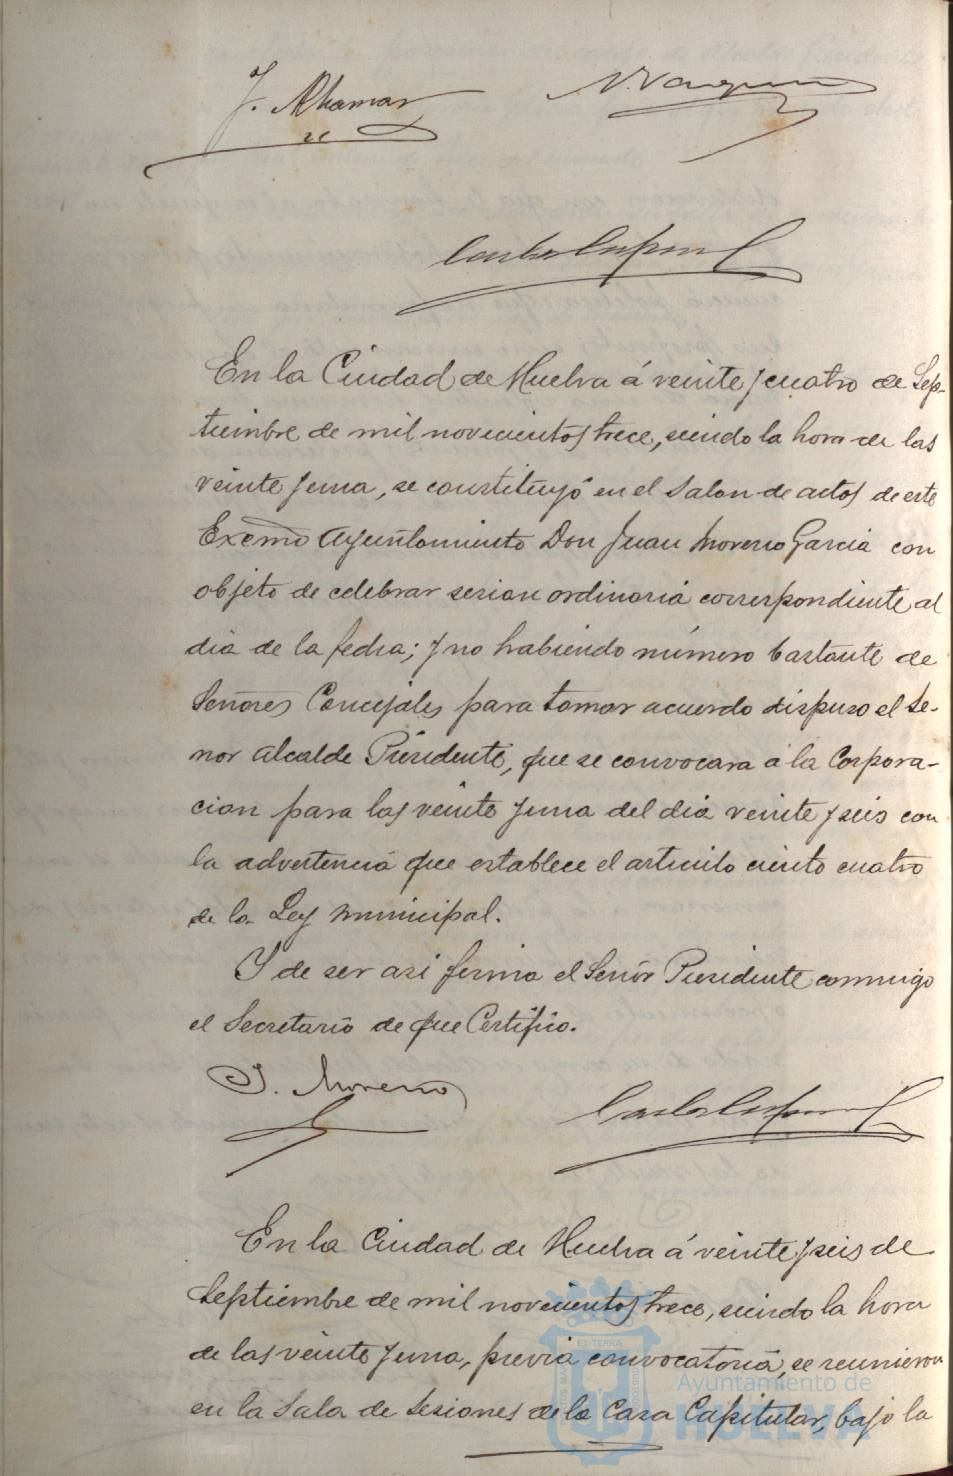 En la Ciudad de Huelva á veinte y cuatro de Sep-
tiembre de mil novecientos trece, siendo la hora de las
veinte y una, se constituyó en el Salon de actos de este
Excmo Ayuntamiento Don Juan Moreno Garcia con
objeto de celebrar sesion ordinaria correspondiente al
dia de la fecha; y no habiendo número bastante de
Señores Concejales para tomar acuerdo dispuso el Se-
ñor Alcalde Presidente, que se convocara á la Corpora-
cion para las veinte y una del dia veinte y seis con
la advertencia que establece el articulo ciento cuatro
de la Ley Municipal.
Y de ser asi firma el Señor Presidente conmigo
el Secretario de que Certifico.
J. Moreno
En la Ciudad de Huelva á veinte y seis de
Septiembre de mil novecientos trece, siendo la hora
de las veinte y una, previa convocatoria, se reunieron
en la Sala de Sesiones de la Casa Capitular, bajo la
Ayuntamiento de
HUELVA